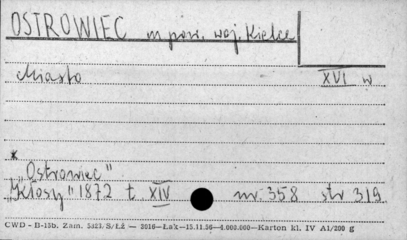 OSTROWIEC m. pow. woj. Kielce
Miasto XVI w
*
"Ostrowiec"
"Kłosy" 1872 t. XIV nr. 358 str 319
CWD - B-15b. Zam. 5323. S/Łż — 2010—Łak—15.11.56—4.000.000—Karton kl. IV A1/200 g